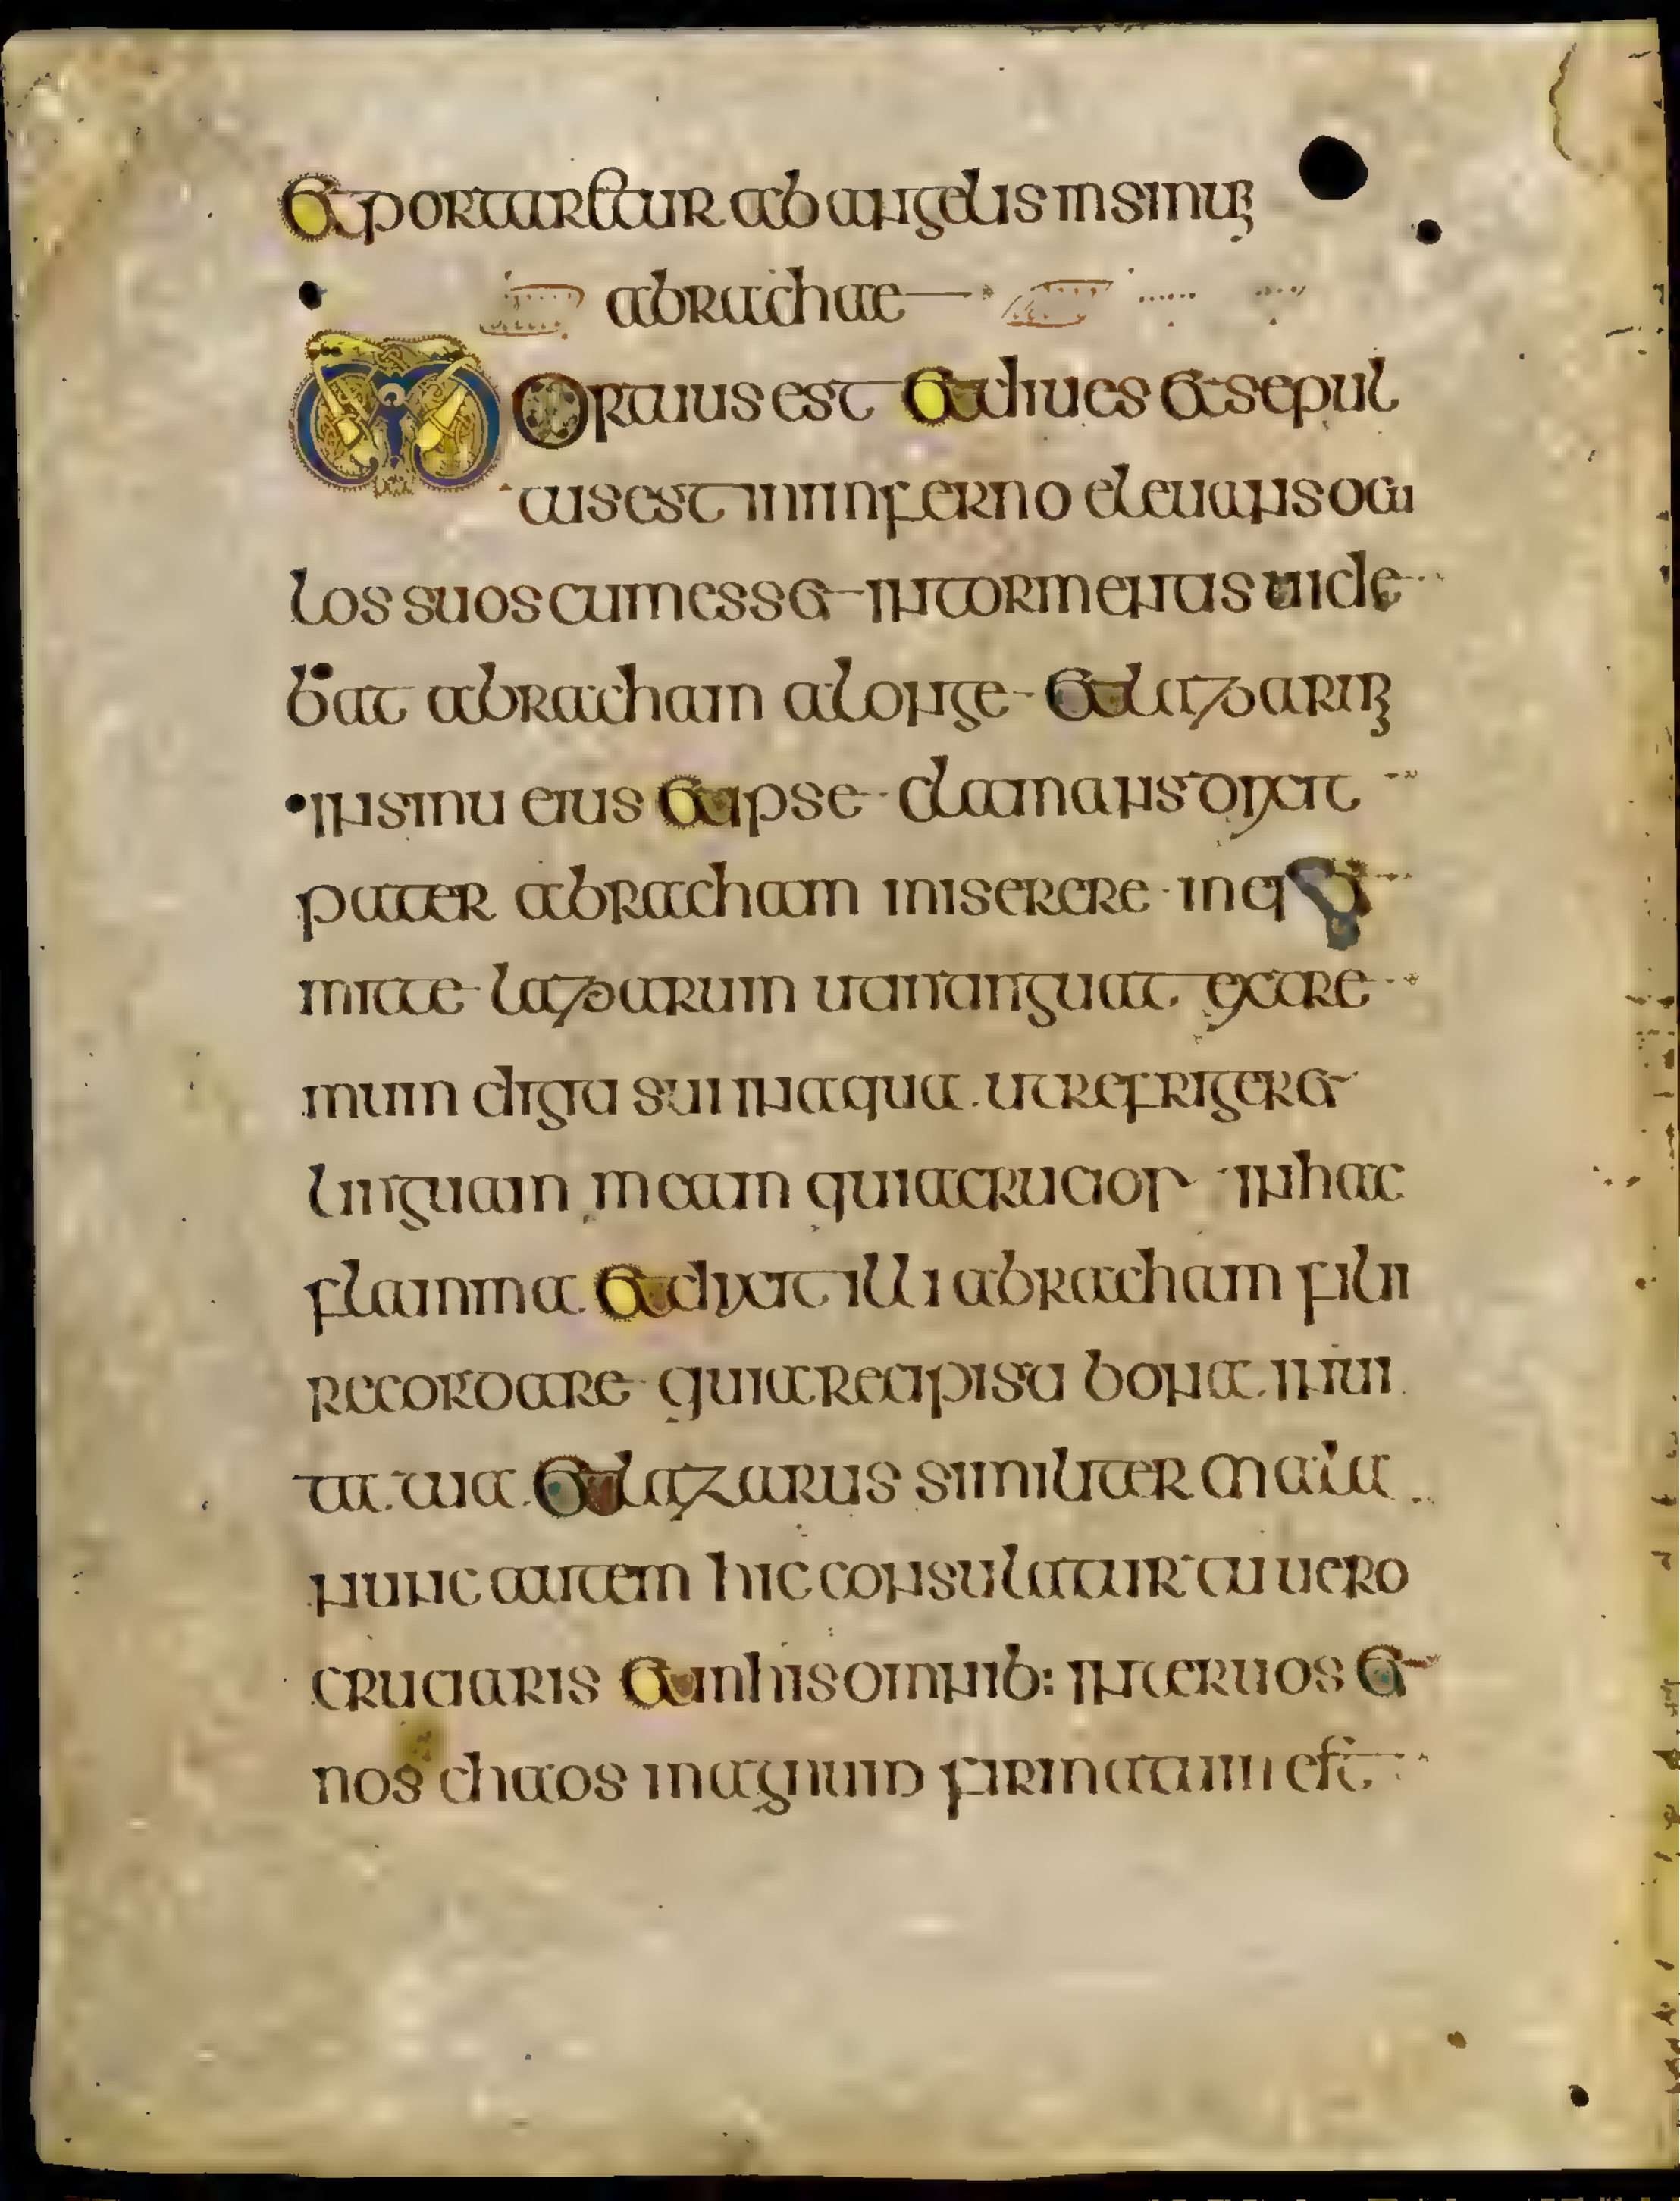 Et portaretur ab angelis in sinum
abrachae
Mortuus est et diues et sepul
tus est in inferno eleuans ocu
los suos cum esset in tormentis uide
bat abracham a longe et lazarum
in sinu eius et ipse clamans dixit
pater abracham miserere mei et
mitte lazarum ut intinguat extre
mum digiti sui in aqua ut refrigeret
linguam meam quia crucior in hac
flamma et dixit illi abracham fili
recordare quia recipisti bona in ui
ta tua et lazarus similiter mala
nunc autem hic consulatur tu uero
cruciaris et in his omnib: inter uos et
nos chaos magnum firmatum est